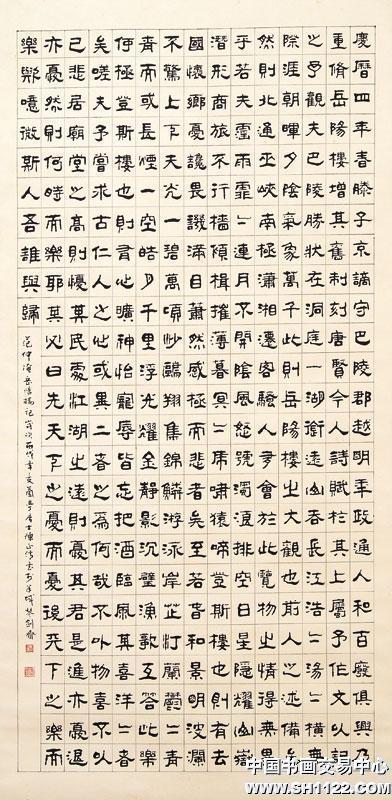 慶曆四年春滕子京謫守巴陵郡越明年政通人和百廢俱興乃
重脩岳陽樓增其舊制刻唐賢今人詩賦於其上屬予作文以記
之予觀夫巴陵勝狀在洞庭一湖銜遠山吞長江浩二湯二橫無
際涯朝暉夕陰氣象萬千此則岳陽樓之大觀也前人之述備矣
然則北通巫峽南極瀟湘遷客騷人多會於此覽物之情得無異
乎若夫霪雨霏二連月不開陰風怒號濁浪排空日星隱耀山嶽
潛形商旅不行檣傾楫摧薄暮冥二虎嘯猿啼登斯樓也則有去
國懷鄉憂讒畏譏滿目蕭然感極而悲者矣至若春和景明波瀾
不驚上下天光一碧萬頃沙鷗翔集錦鱗游泳岸芷汀蘭鬱二青
青而或長煙一空皓月千里浮光耀金靜影沉璧漁歌互答此樂
何極登斯樓也則有心曠神怡寵辱皆忘把酒臨風其喜洋二者
矣嗟夫予嘗求古仁人之心或異二者之為何哉不以物喜不以
己悲居廟堂之高則憂其民處江湖之遠則憂其君是進亦憂退
亦憂然則何時而樂耶其必曰先天下之憂而憂後天下之樂而
樂歟噫微斯人吾誰與歸
范仲淹岳陽樓記歲次丙戌年
中国书画交易中心
www.SH1122.com